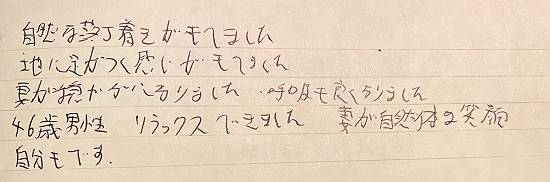 自然な落丁着きがもてました
地に足がつく感じがもてました
妻が穏やかになりました 呼吸も良くなりました
46歳男性 リラックスできました 妻が自然体な笑顔
自分もです.